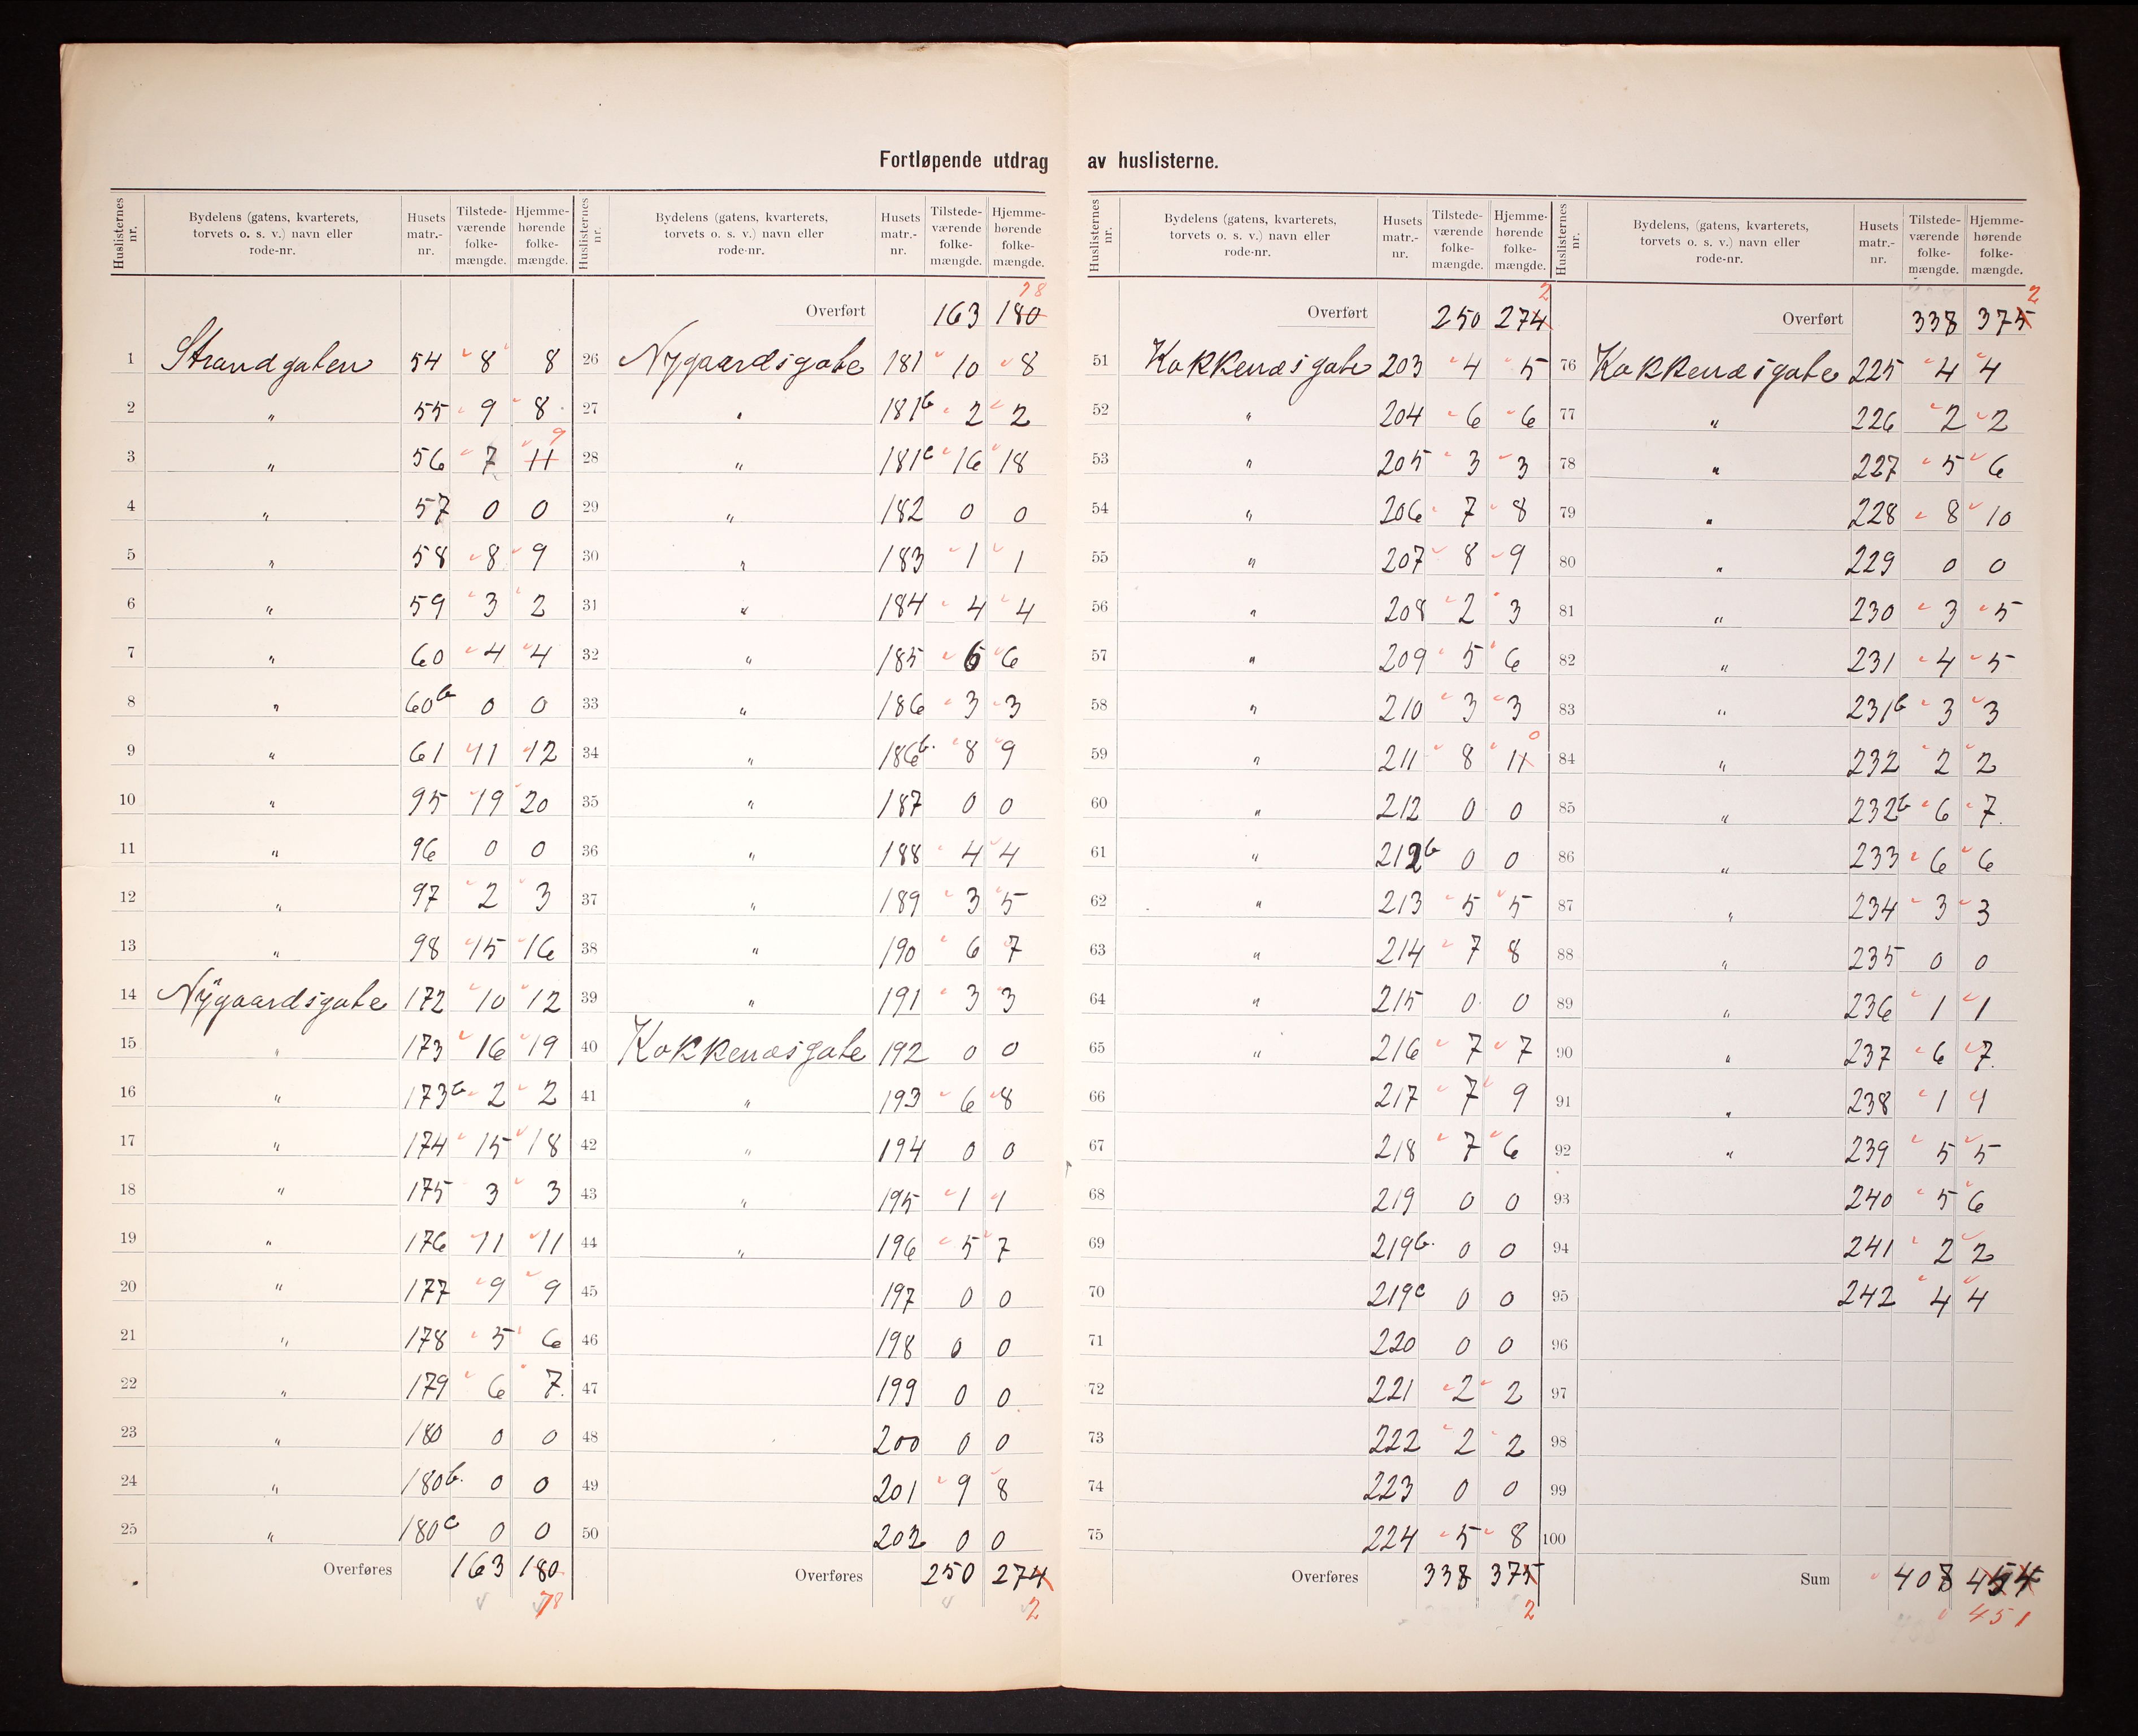 Fortløpende utdrag av huslisterne.
Huslisternes nr. | Bydelens (gatens, kvarterets, torvets o. s. v.) navn eller rode-nr. | Husets matr.-nr. | Tilstede-værende folke-mængde. | Hjemme-hørende folke-mængde.
1 Strandgaten 54 8 8
2 " 55 9 8
3 " 56 7 11 9
4 " 57 0 0
5 " 58 8 9
6 " 59 3 2
7 " 60 4 4
8 " 60b 0 0
9 " 61 11 12
10 " 95 19 20
11 " 96 0 0
12 " 97 2 3
13 " 98 15 16
14 Nygaardsgate 172 10 12
15 " 173 16 19
16 " 173b 2 2
17 " 174 15 18
18 " 175 3 3
19 " 176 11 11
20 " 177 9 9
21 " 178 5 6
22 " 179 6 7.
23 " 180 0 0
24 " 180b. 0 0
25 " 180c 0 0
Overføres 163 180 78
Huslisternes nr. | Bydelens (gatens, kvarterets, torvets o. s. v.) navn eller rode-nr. | Husets matr.-nr. | Tilstede-værende folke-mængde. | Hjemme-hørende folke-mængde.
Overført 163 180 78
26 Nygaardsgate 181 10 8
27 " 181b 2 2
28 " 181c 16 18
29 " 182 0 0
30 " 183 1 1
31 " 184 4 4
32 " 185 6 6
33 " 186 3 3
34 " 186b. 8 9
35 " 187 0 0
36 " 188 4 4
37 " 189 3 5
38 " 190 6 7
39 " 191 3 3
40 Kokkenæsgate 192 0 0
41 " 193 6 8
42 " 194 0 0
43 " 195 1 1
44 " 196 5 7
45 197 0 0
46 198 0 0
47 199 0 0
48 200 0 0
49 201 9 8
50 202 0 0
Overføres 250 274 2
Huslisternes nr. | Bydelens (gatens, kvarterets, torvets o. s. v.) navn eller rode-nr. | Husets matr.-nr. | Tilstede-værende folke-mængde. | Hjemme-hørende folke-mængde.
Overført 250 274 2
51 Kokkenæsgate 203 4 5
52 " 204 6 6
53 " 205 3 3
54 " 206 7 8
55 " 207 8 9
56 " 208 2 3
57 " 209 5 6
58 " 210 3 3
59 " 211 8 11 0
60 " 212 0 0
61 " 212b 0 0
62 " 213 5 5
63 " 214 7 8
64 " 215 0 0
65 " 216 7 7
66 217 7 9
67 218 7 6
68 219 0 0
69 219b. 0 0
70 219c 0 0
71 220 0 0
72 221 2 2
73 222 2 2
74 223 0 0
75 224 5 8
Overføres 338 375 2
Huslisternes nr. | Bydelens (gatens, kvarterets, torvets o. s. v.) navn eller rode-nr. | Husets matr.-nr. | Tilstede-værende folke-mængde. | Hjemme-hørende folke-mængde.
Overført 338 375 2
76 Kokkenæsgate 225 4 4
77 " 226 2 2
78 " 227 5 6
79 " 228 8 10
80 " 229 0 0
81 " 230 3 5
82 " 231 4 5
83 " 231b 3 3
84 " 232 2 2
85 " 232b 6 7.
86 " 233 6 6
87 " 234 3 3
88 " 235 0 0
89 " 236 1 1
90 " 237 6 7.
91 " 238 1 1
92 " 239 5 5
93 240 5 6
94 241 2 2
95 242 4 4
96
97
98
99
100
Sum 408 454
451